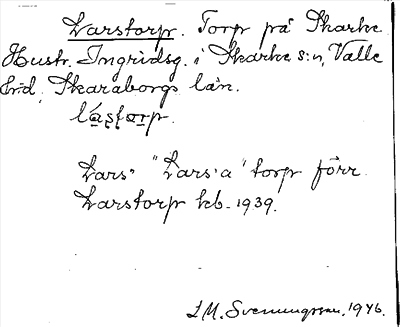 Larstorp. Torp på Skarke
Hustr. Ingridsg. i Skarke s:n, Valle
hrd, Skaraborgs län.
Lars" "Lars:a" torp förr.
Larstorp kb. 1939.
I.M. Svenungsson. 1946.